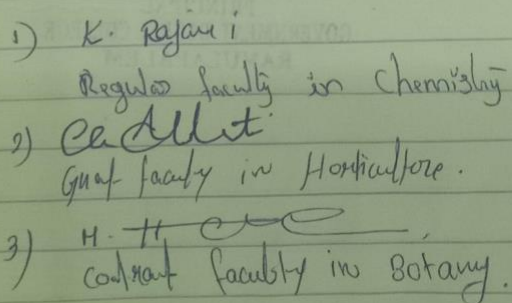 1) K. Rajani
Regular faculty in Chemistry
2)
Guest faculty in Horticulture.
3) H.
Contract faculty in Botany.